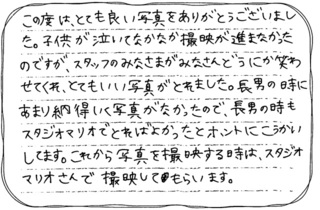 この度は、とても良い写真をありがとうございまし
た。子供が泣いてなかなか撮映が進まなかった
のですが、スタッフのみなさまがみなさんどうにか笑わ
せてくれ、とてもいい写真がとれました。長男の時に
あまり納得いく写真がなかったので、長男の時も
スタジオマリオでとればよかったとホントにこうかい
してます。これから写真を撮映する時は、スタジオ
マリオさんで撮映してもらいます。